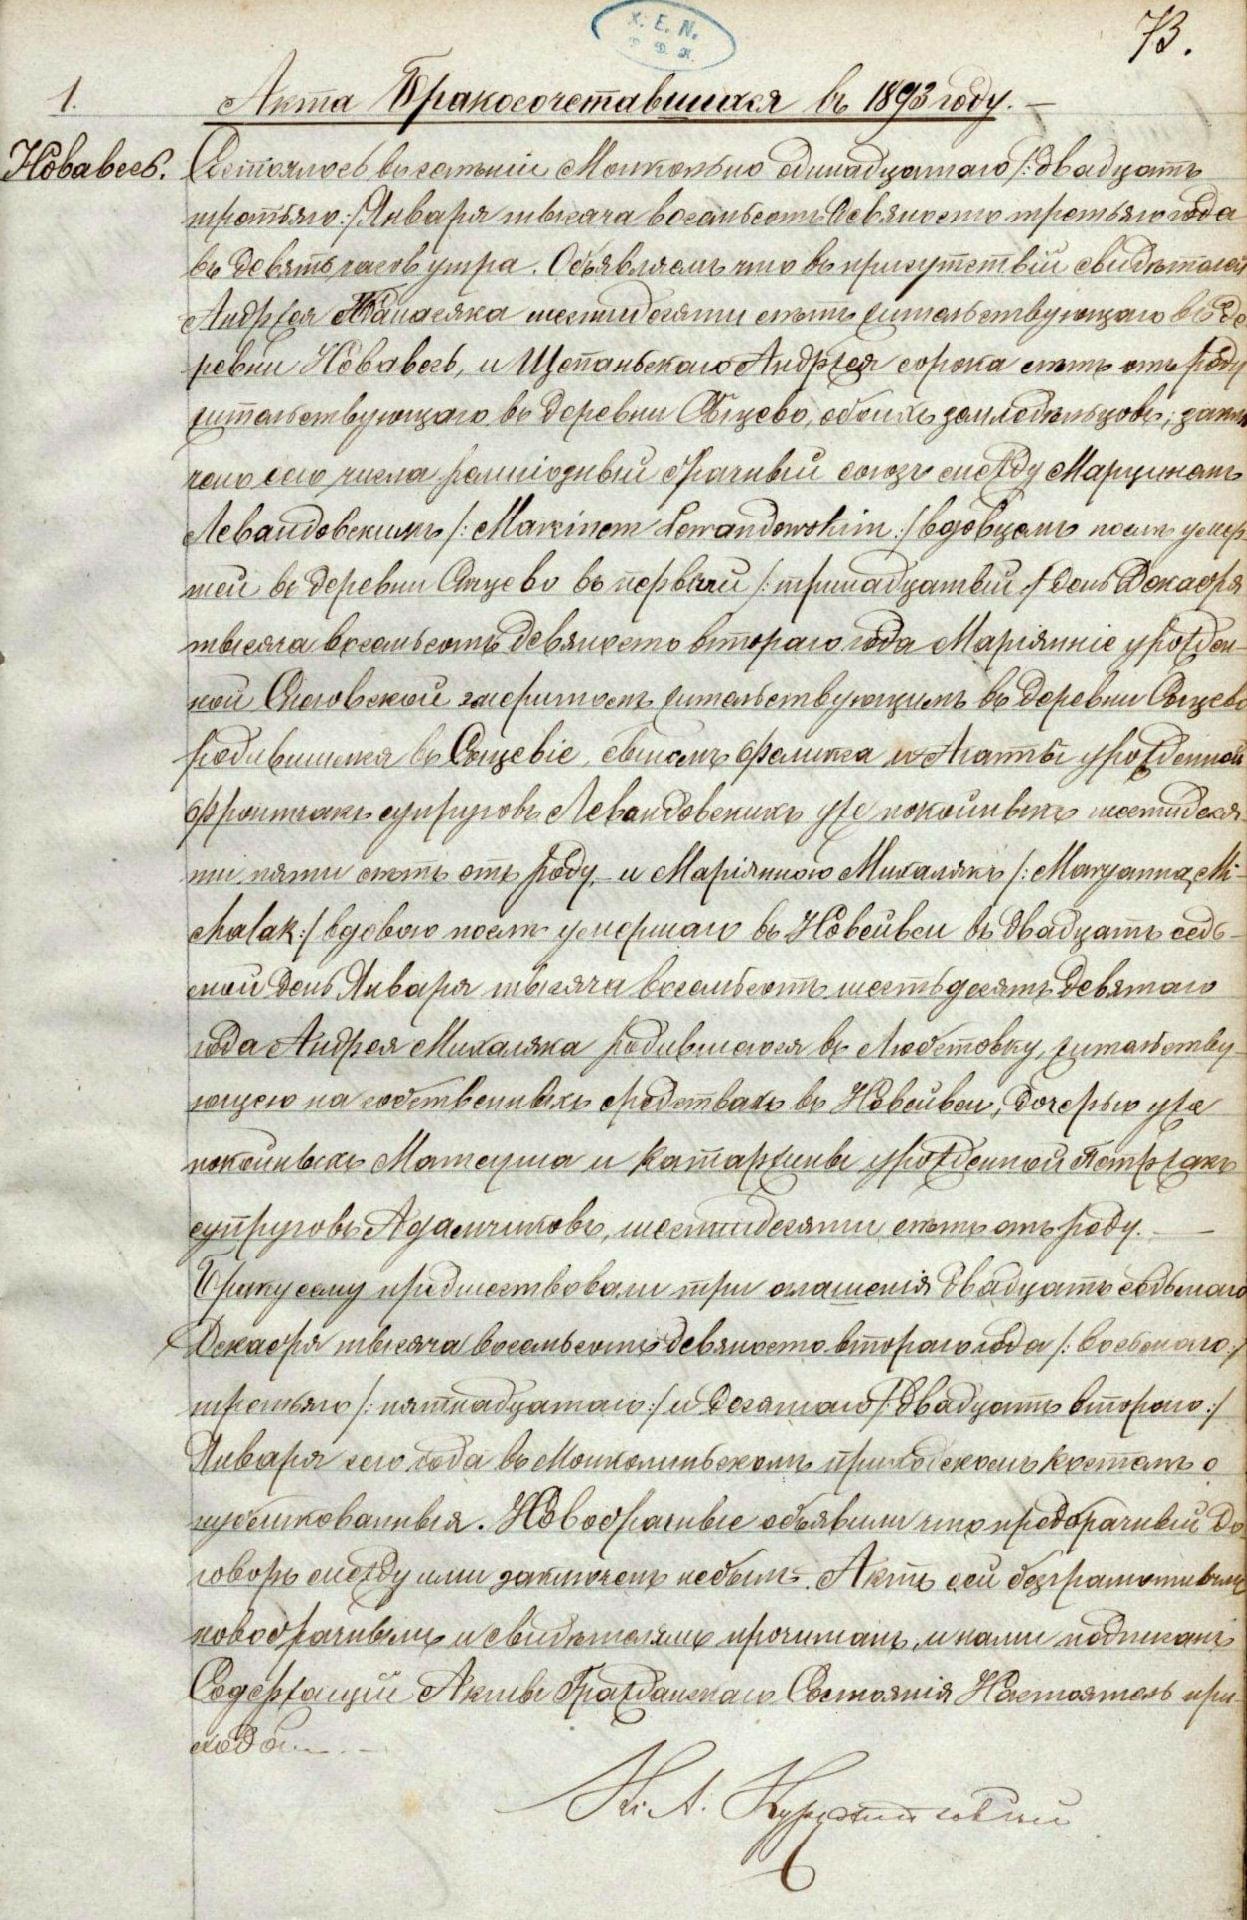 X. E. N.
73.
1. Акта Бракосочетавшихся въ 1893 году. —
Новавесь. Состоялось въ селенiи одинадцатаго /: двадцать
третьяго :/ Января тысяча восемьсотъ девяносто третьяго года
въ девять часовъ утра. Объявляемъ что въ присутствiи свидѣтелей
Андржея Банасяка шестидесяти лѣтъ жительствующаго въ де
ревни Новавесь, и Щепаньскаго Андржея сорока лѣтъ отъ роду
жительствующаго въ деревни обоихъ земледѣльцовъ; заклю
чено сего числа религiозный брачный союзъ между Марциномъ
Левандовскимъ /: Marcinem Lewandowskim :/ вдовцомъ послѣ умер
шей въ деревни въ первый /: тринадцатый :/ день Декабря
тысяча восемьсотъ девяносто втораго года Марiяннiе урожден-
ной жительствующимъ въ деревни
родившимся въ сыномъ Феликса и Агаты урожденной
супруговъ Левандовскихъ уже покойныхъ шестидеся-
ти пяти лѣтъ отъ роду, и Марiянною Михалякъ /: Maryanna Mi-
chalak :/ вдовою послѣ умершаго въ Новейвси въ двадцать седь-
мой день Января тысяча восемьсотъ шестьдесятъ девятаго
года Андрея Михаляка родившагося въ жительству-
ющею на собственныхъ средствахъ въ Новейвси, дочерью уже
покойныхъ Матеуша и Катаржины урожденной Петржакъ
супруговъ Адамчиковъ, шестидесяти лѣтъ отъ роду. —
Браку сему предшествовали три оглашенiя двадцать седьмаго
Декабря тысяча восемьсотъ девяносто втораго года /: восьмаго :/
третьяго /: пятнадцатаго :/ и десятаго /: двадцать втораго :/
Января сего года въ приходскомъ костелѣ о
публикованныя. Новобрачные объявили что предбрачный до
говоръ между ими заключенъ небылъ. Актъ сей безграмотнымъ
новобрачнымъ и свидѣтелямъ прочитанъ, и нами подписанъ
Содержащiй Акты Гражданскаго Состоянiя Настоятель при-
хода. —